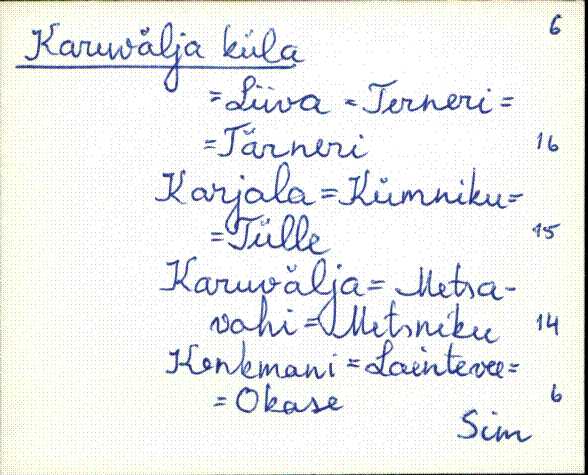 6
Karuvälja küla
=Liiva - Terneri =
=Tärneri 16
Karjala = Kümniku=
=Tülle 15
Karuvälja = Metsa-
vahi = Metsniku 14
Konkmani = Laintevee=
= Okase 6
Sim